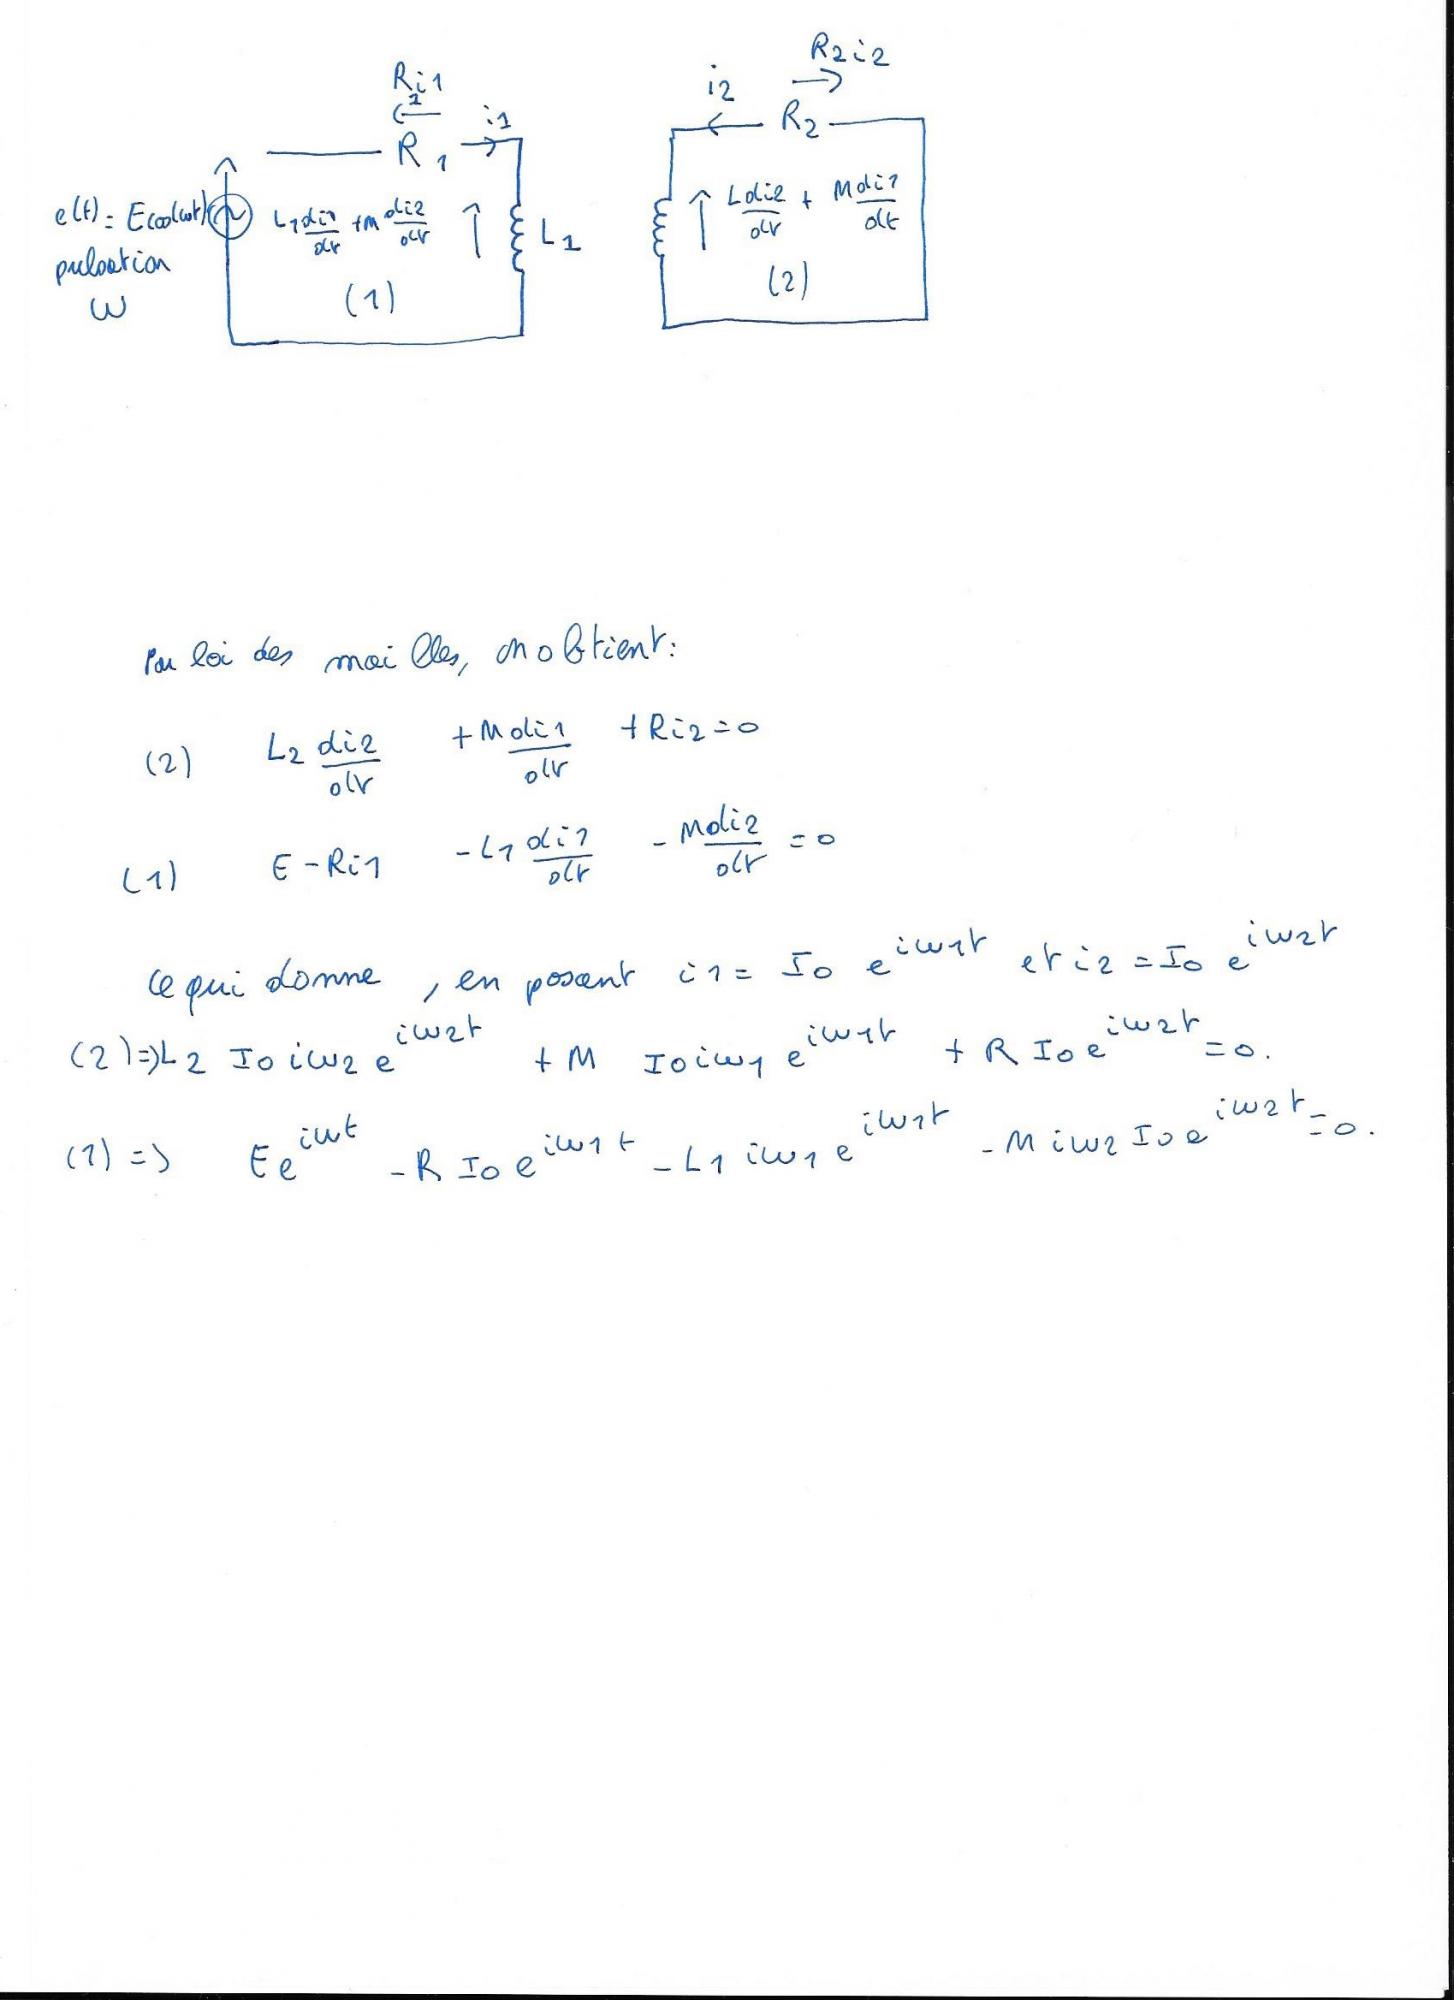 Ri1
1
i1
R1
e(t) = Ecos(wt)
pulsation
ω
L1 di1/dt + M di2/dt
L1
(1)
R2i2
i2
R2
Ldi2/dt + Mdi1/dt
(2)
Par loi des mailles, on obtient:
(2) L2 di2/dt + M di1/dt + Ri2 = 0
(1) E - Ri1 - L1 di1/dt - Mdi2/dt = 0
Ce qui donne, en posant i1 = I0 e^{iw1t} et i2 = I0 e^{iw2t}
(2) => L2 I0 iw2 e^{iw2t} + M I0 iw1 e^{iw1t} + R I0 e^{iw2t} = 0.
(1) => E e^{iwt} - R I0 e^{iw1t} - L1 iw1 e^{iw1t} - M iw2 I0 e^{iw2t} = 0.